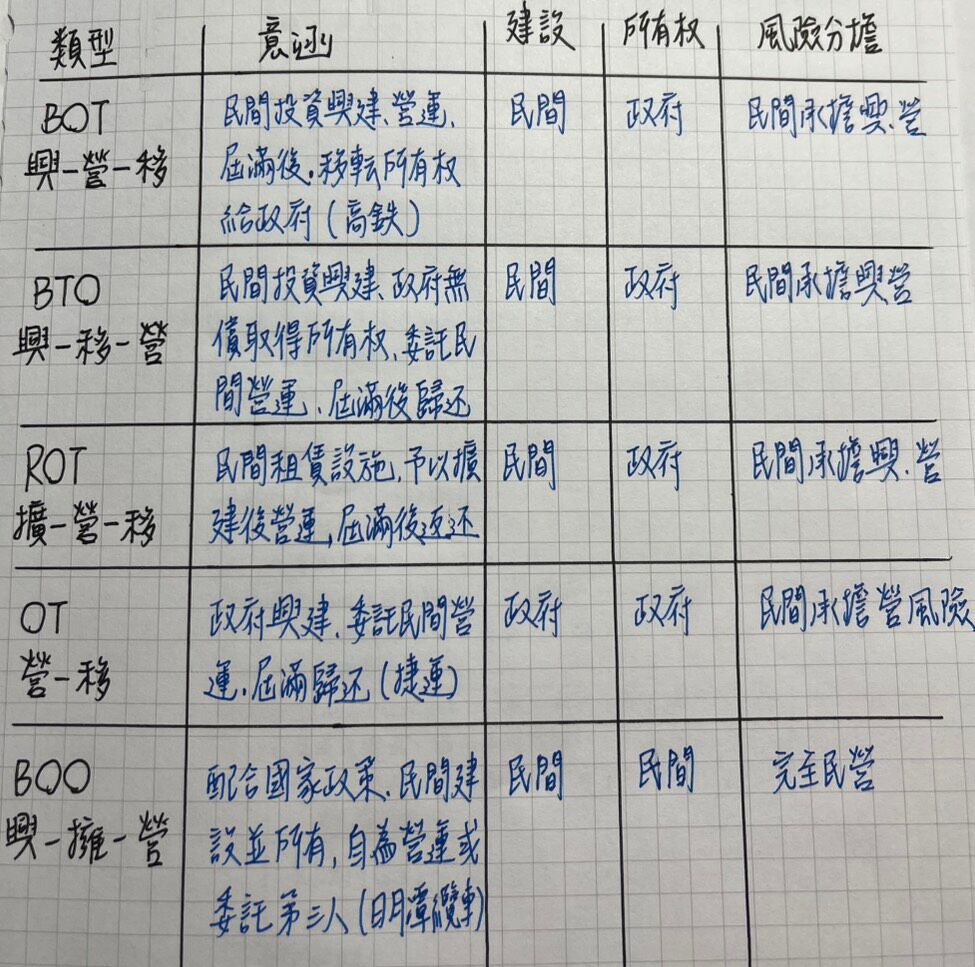 類型 意涵 建設 所有权 風險分擔
BOT 民間投資興建、營運、 民間 政府 民間承擔興、營
興-營-移 屆滿後、移転所有权
給政府(高鉄)
BTO 民間投資興建、政府無 民間 政府 民間承擔興營
興-移-營 償取得所有权、委託民
間營運、屆滿後歸还
ROT 民間租賃設施,予以擴 民間 政府 民間承擔興、營
擴-營-移 建後營運,屆滿後返还
OT 政府興建、委託民間營 政府 政府 民間承擔營風險
營-移 運、屆滿歸还(捷運)
BOO 配合國家政策、民間建 民間 民間 完全民營
興-擁-營 設並所有,自為營運或
委託第三人(日月潭纜車)